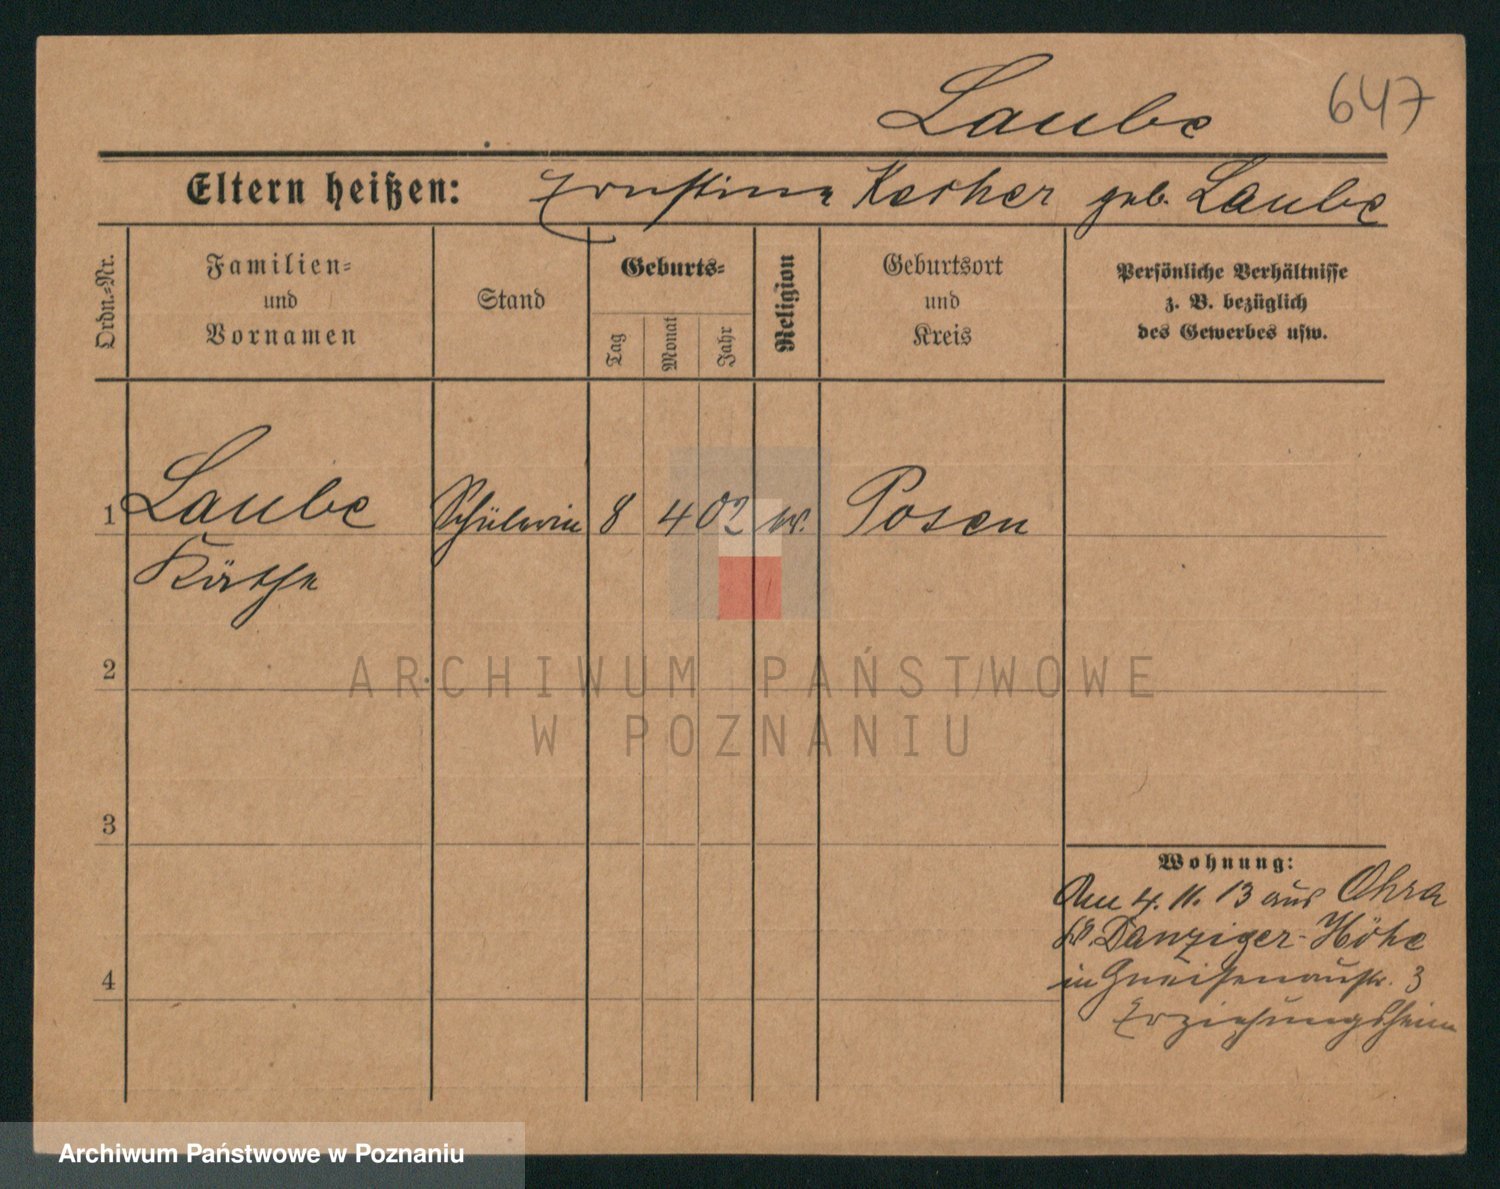 Laube
647
Eltern heißen: Ernstine geb. Laube
Ordn.-Nr.
Familien-
und
Vornamen
Stand
Geburts-
Tag
Monat
Jahr
Religion
Geburtsort
und
Kreis
Persönliche Verhältnisse
z. B. bezüglich
des Gewerbes usw.
1 Laube Schülerin 8 4 02 Posen
Käthe
2
ARCHIWUM PAŃSTWOWE
W POZNANIU
3
Wohnung:
Am 4. 11. 13 aus Ohra
Danziger-Höhe
4
in Gneisenaustr. 3
Erziehungsheim
Archiwum Państwowe w Poznaniu